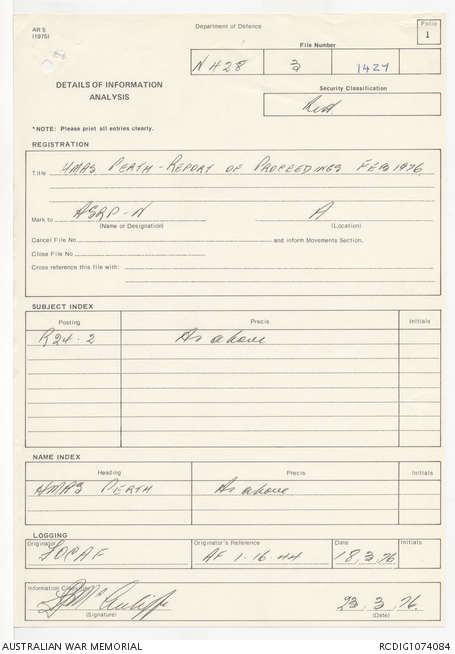 AR 5
(1975)
Department of Defence
Folio
1
File Number
N428 3/2 1427
DETAILS OF INFORMATION
ANALYSIS
Security Classification
Rest.
*NOTE: Please print all entries clearly.
REGISTRATION
Title HMAS PERTH - REPORT OF PROCEEDINGS FEB 1976
Mark to ASRP-N A
(Name or Designation) (Location)
Cancel File No and inform Movements Section.
Close File No
Cross reference this file with:
SUBJECT INDEX
Posting Precis Initials
R24-2 As above
NAME INDEX
Heading Precis Initials
HMAS PERTH As above
LOGGING
Originator Originator's Reference Date Initials
FOCAF AF 1-16-44 18.3.76
Information
(Signature) (Date)
23.3.76.
AUSTRALIAN WAR MEMORIAL RCDIG1074084